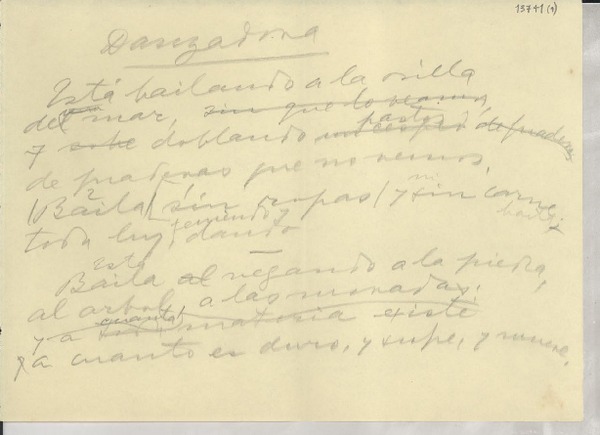 13741(1)
Danzadora
Está bailando a la orilla
del mar, sin que lo veamos,
pastos
y sobre doblando de praderas
de praderas que no vemos.
Baila sin ropas y ni sin carne
toda luz, dando
Está
Baila al negando a la piedra,
al arbol, a las moradas,
cuanta
y a materia existe
y a cuanto es duro, y sufre, y muere.